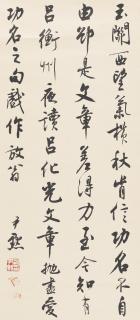 玉關西望氣橫秋肯信功名不自
由卻是文章差得力至今知有
呂衡州夜讀呂化光文章抛盡愛
功名之句戲作放翁
尹默